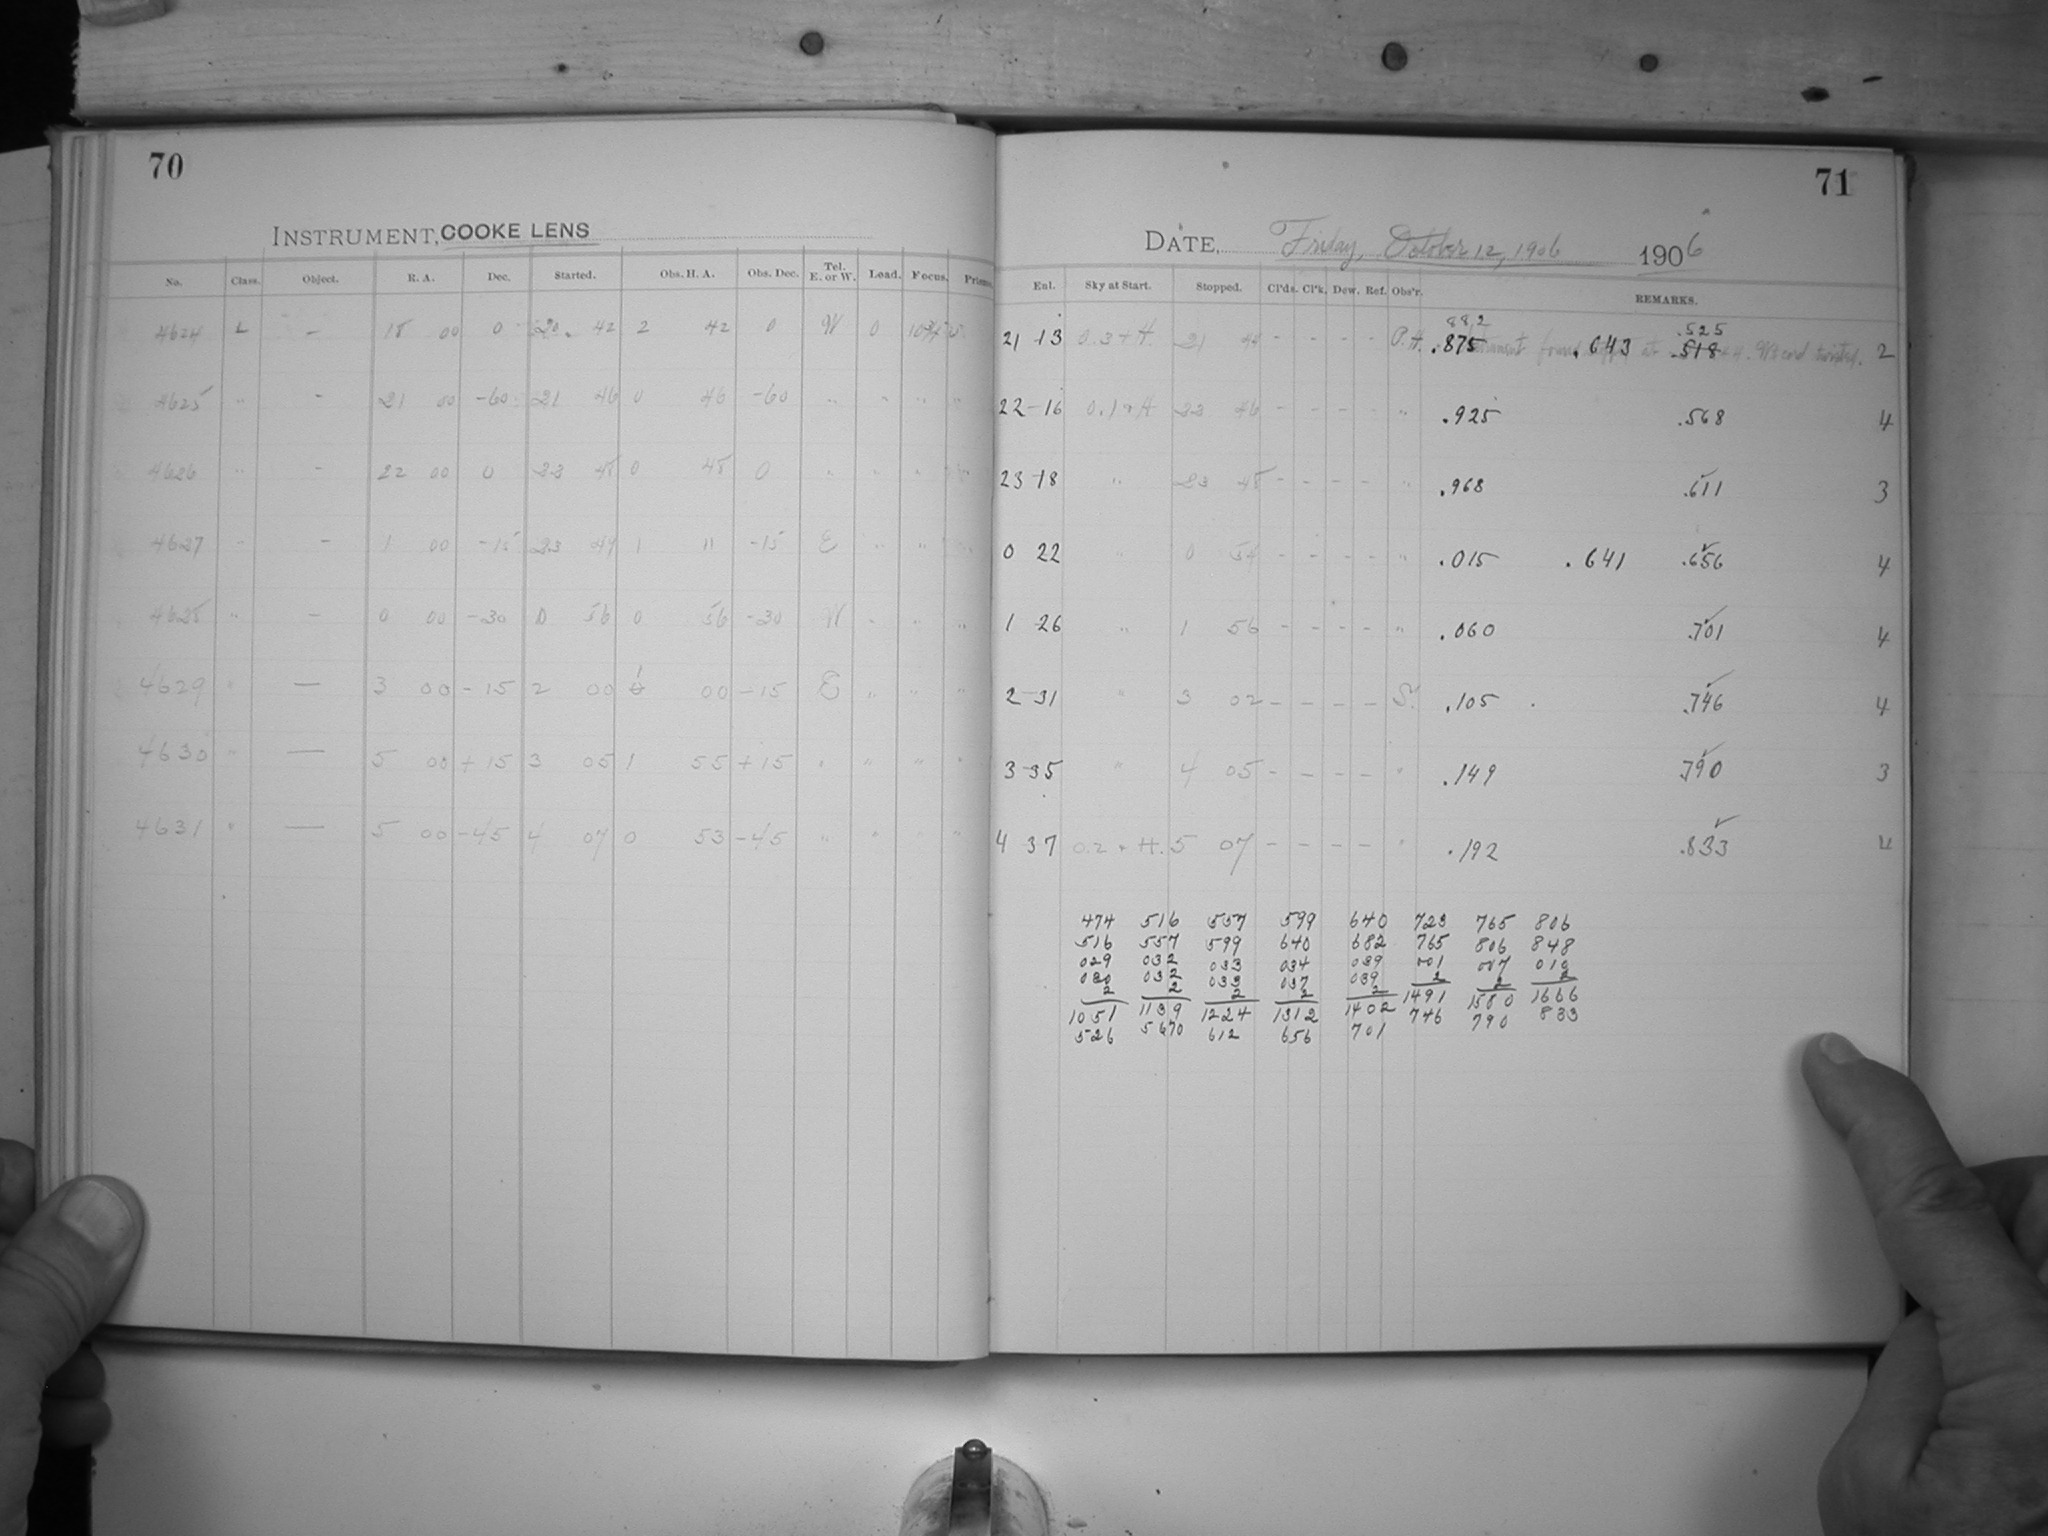 70
71
INSTRUMENT, COOKE LENS
DATE, Friday, October 12, 1906 1906
No. Class. Object. R. A. Dec. Started. Obs. H. A. Obs. Dec. Tel. E. or W. Load. Focus. Enl. Sky at Start. Stopped. Cl'ds. Cl'k. Dew. Ref. Obs'r. REMARKS.
882 .525
4624 L — 18 00 0 20 42 2 42 0 W 0 21 13 0.3 + H. 21 - - - - P.H. .875 found .643 at .518 cord twisted. 2
4625 " - 21 00 -60 21 46 0 46 -60 " " " " 22-16 22 46 - - - - " .925 .568 4
4626 " - 22 00 0 0 48 0 " " " " 23 18 " 23 48 - - - - " .968 .611 3
4627 - 1 00 -15 23 49 1 11 -15 E " " " 0 22 " 0 54 - - - - " .015 .641 .656 4
4628 " - 0 00 -30 0 56 0 56 -30 W " " " 1 26 " 1 56 - - - - " .060 .701 4
4629 " — 3 00 -15 2 00 1 00 -15 E " " " 2-31 " 3 02 - - - - S. .105 .746 4
4630 " — 5 00 +15 3 05 1 55 +15 " " " " 3-35 " 4 05 - - - - " .149 .790 3
4631 " — 5 00 -45 4 07 0 53 -45 " " " " 4 37 0.2 + H. 5 07 - - - - " .192 .833 4
474 516 557 599 640 723 765 806
516 557 599 640 682 765 806 848
029 032 033 034 039 001 007 010
030 032 033 037 039 2 2 2
2 2 2 2 2 1491 1580 1666
1051 1139 1224 1312 1402 746 790 833
526 5670 612 656 701